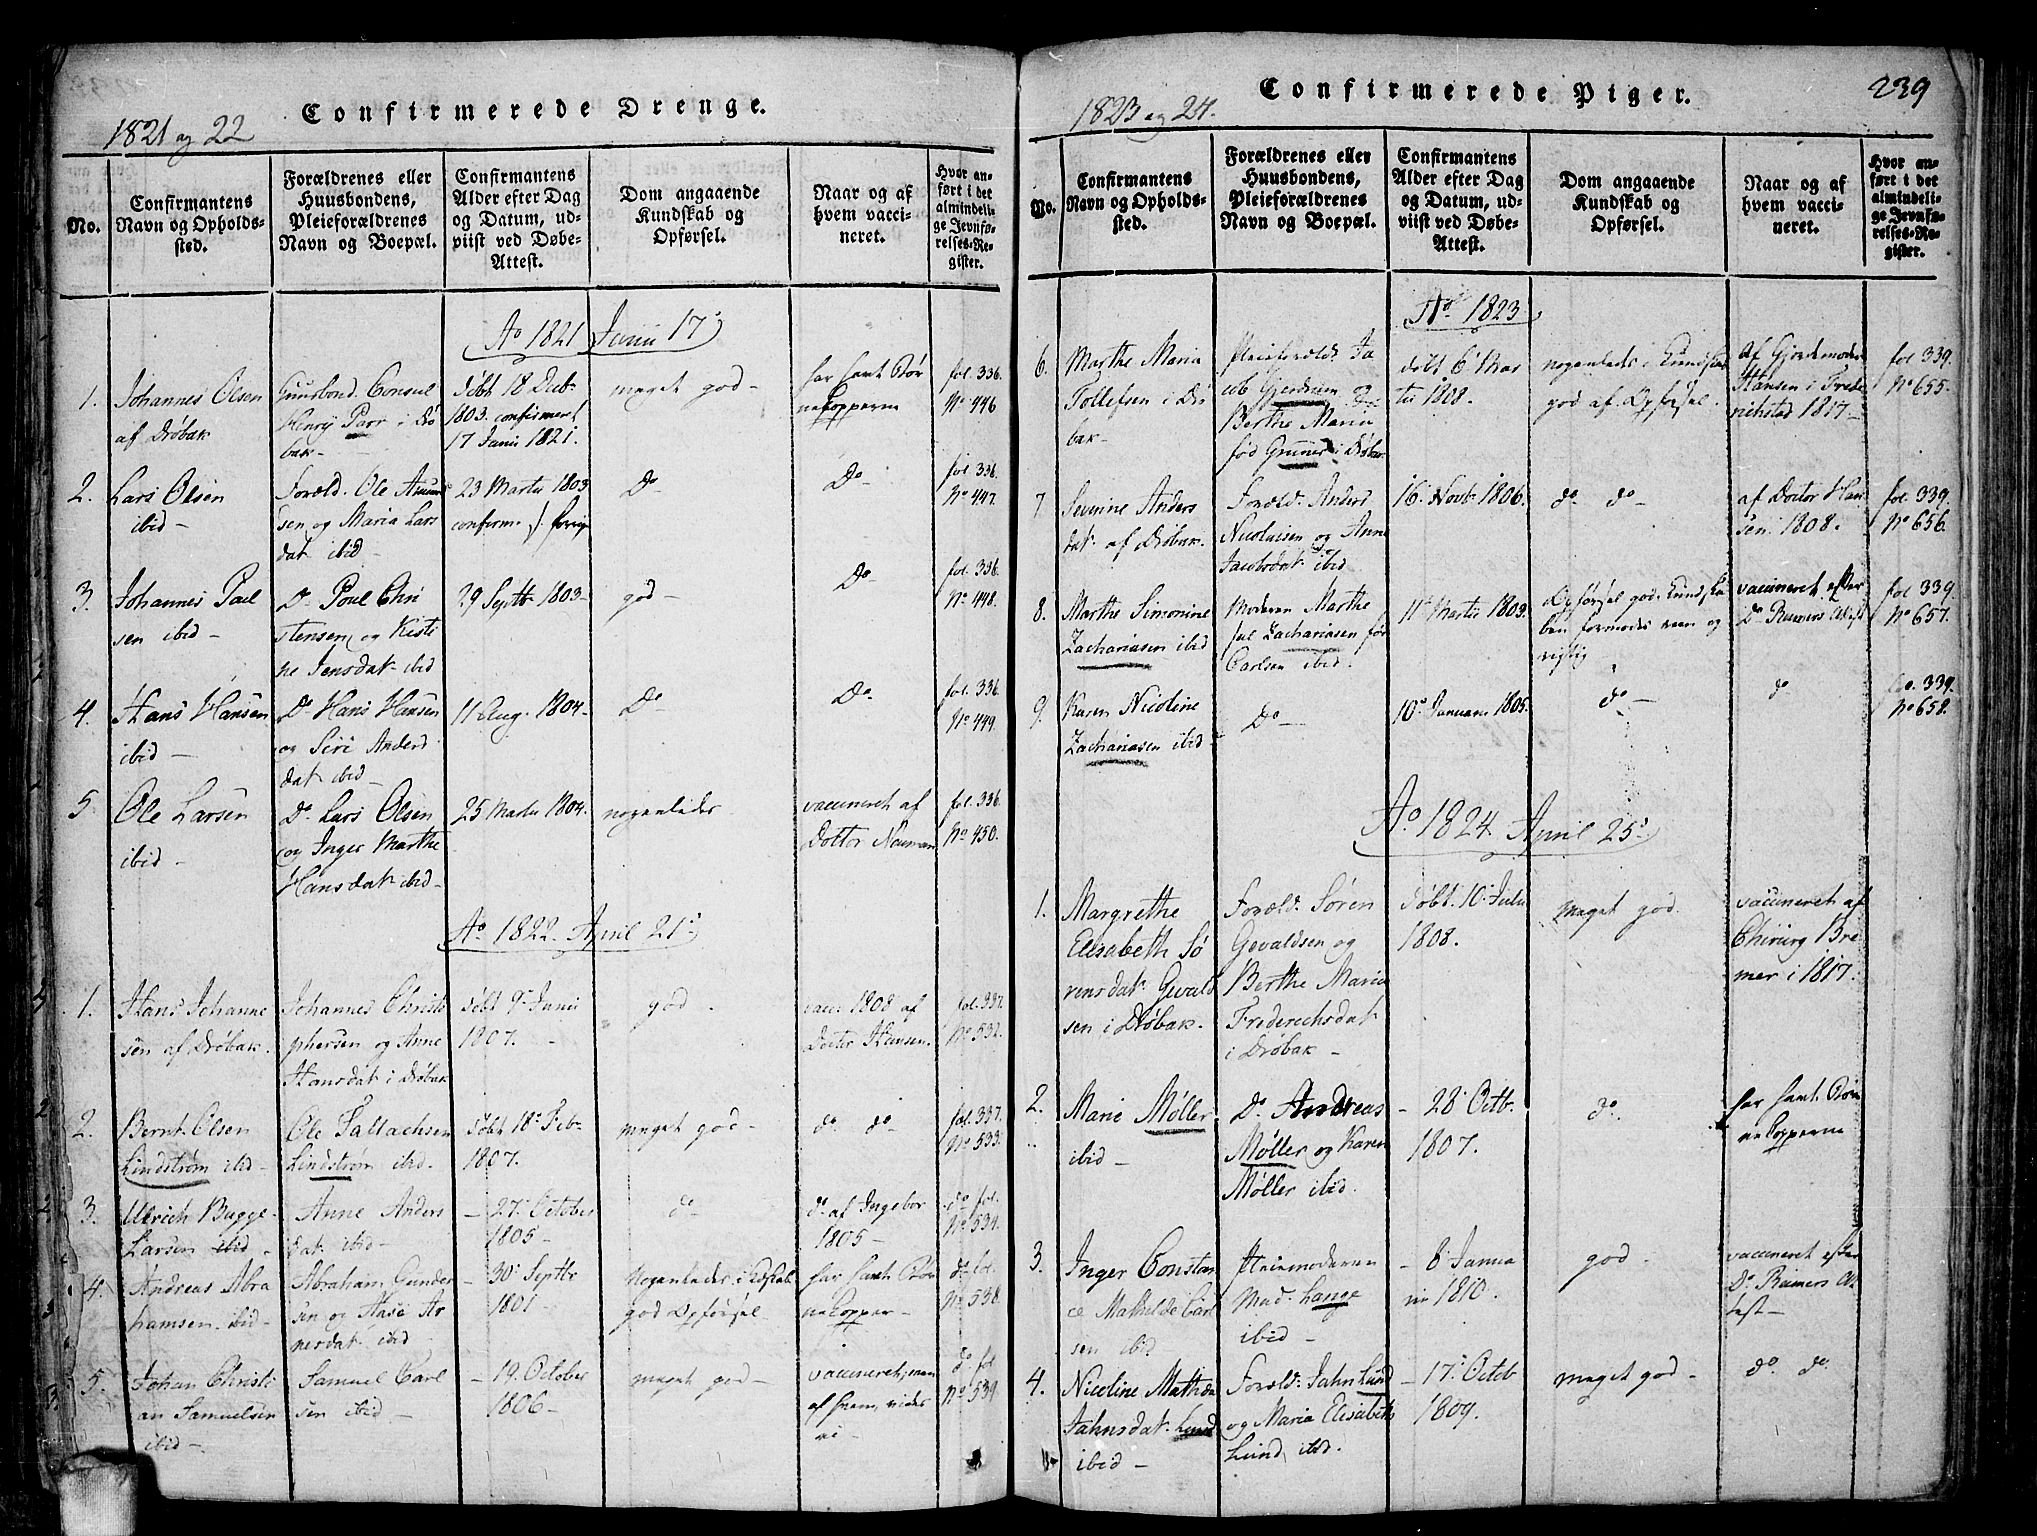 Confirmerede Drenge.
1821 og 22
No.
Confirmantens
Navn og Opholds-
sted.
Forældrenes eller
Huusbondens,
Pleieforældrenes
Navn og Boepæl.
Confirmantens
Alder efter Dag
og Datum, ud-
viist ved Døbe-
Attest.
Dom angaaende
Kundskab og
Opførsel.
Naar og af
hvem vacci-
neret.
Hvor an-
ført i det
almindeli-
ge Jevnfø-
relses-Re-
gister.
Ao 1821 Junii 17
1.
Johannes Olsen
af Drøbak
Huusbond. Consul
Henry Parr i Drø
bak-
døbt 18 Decb.
1803. confirmert
17 Junii 1821.
meget god-
har havt Bør
nekopperne
fol. 336.
No 446
2.
Lars Olsen
ibid-
Foræld. Ole Amund
sen og Maria Lars
dat. ibid-
23 Martii 1803
confirm.
Do
Do-
fol. 336.
No 447.
3.
Johannes Poul
sen ibid-
Do Poul Chri
stensen og Kisti
ne Jensdat. ibid
29 Septbr 1803-
god-
Do-
fol. 336.
No. 448.
4.
Hans Hansen
ibid-
Do Hans Hansen
og Siri Anders
dat ibid-
11 Aug. 1804-
Do-
Do-
fol. 336.
No 449.
5.
Ole Larsen
ibid-
Do Lars Olsen
og Inger Marthe
Hansdat. ibid-
25 Martii 1804.
nogenledes
vaccineret af
Doctor Neuman
fol. 336.
No 450.
Ao 1822. April 21
1.
Hans Johanne
sen af Drøbak.
Johannes Christo
phersen og Anne
Hansdat. i Drøbak
døbt 9 Junii
1807.
god.
vacc. 1808 af
Doctor Hansen.
fol. 337.
No 532.
2.
Bernt Olsen
Lindstrøm ibid-
Ole Sallachsen
Lindstrøm ibid.
døbt 18 Feb-
1807.
meget god-
do do-
fol. 337.
No 533.
3.
Ulrich Bugge-
Larsen ibid-
Anne Anders
dat. ibid-
- 27 October
1805-
do
do af Ingebor
1805-
do fol.
No 534.
4.
Andreas Abra
hamsen. ibid-
Abraham Gunder
sen og Hasi Ar
nesdat. ibid
- 30 Septbr
1801-
Nogenledes i Kdskab
god Opførsel
har havt Bør
nekopper-
do fol.
No 538.
5.
Johan Christi
an Samuelsen
ibid-
Samuel Carl
sen ibid-
- 19 October
1806-
meget god-
vaccineret, men
af hvem, vides
ei-
do fol
No 539.
Confirmerede Piger.
239
1823 og 24.
No.
Confirmantens
Navn og Opholds-
sted.
Forældrenes eller
Huusbondens,
Pleieforældrenes
Navn og Boepæl.
Confirmantens
Alder efter Dag
og Datum, ud-
viist ved Døbe-
Attest.
Dom angaaende
Kundskab og
Opførsel.
Naar og af
hvem vacci-
neret.
Hvor an-
ført i det
almindeli-
ge Jevnfø-
relses-Re-
gister.
Ao 1823
6.
Marthe Maria
Tollefsen i Drø
bak-
Pleieforæld. Ja
cob Gjerdrum og
Berthe Maria
fød Gruner i Drøbak
døbt 6 Mar
tii 1808.
nogenleds i Kundskab
god af Opførsel.
Af Gjordemoder
Hansen i Frede
richstad 1817-
fol 339.
No 655.
7
Sevrine Anders
dat. af Drøbak.
Foræld. Anders
Nicolaisen og Anne
Jacobsdat. ibid
16 Novb. 1806.
do do-
af Doctor Han
sen. 1808.
fol. 339.
No 656.
8.
Marthe Simonine
Zachariasen ibid
Moderen Marthe
Zachariasen fød
Carlsen ibid.
11 Martii 1803.
Opførsel god. Kundska
ben formodes reen og
rigtig
vaccineret efter
Do Attest
fol 339.
No 657.
9.
Karen Nicoline
Zachariasen ibid-
Do-
10 Januarii 1805.
do-
do
fol. 339.
No 658.
Ao 1824 April 25
1.
Margrethe
Elisabeth Sø
rensdat. Gevald
sen i Drøbak.
Foræld. Søren
Gevaldsen og
Berthe Maria
Frederichsdat
i Drøbak-
døbt. 10 Julii
1808.
meget god.
vaccineret af
Chirurg Bre
mer i 1817.
2.
Marie Møller
ibid-
Do Andreas
Møller og Karen
Møller ibid.
- 28 Octb.
1807.
do.
har havt Bør
nekopperne
3.
Inger Constan
ce Mathilde Carl
sen ibid-
Pleiemoderen
Mad. Lange
ibid-
- 8 Janua
rii 1810.
god-
vaccineret efter
Do At
test-
4.
Nicoline Mathia
Jahnsdat. Lund
ibid-
Foræld. Jahn Lund
og Maria Elisabeth
Lund, ibid.
- 17 Octob
1809.
meget god-
do do